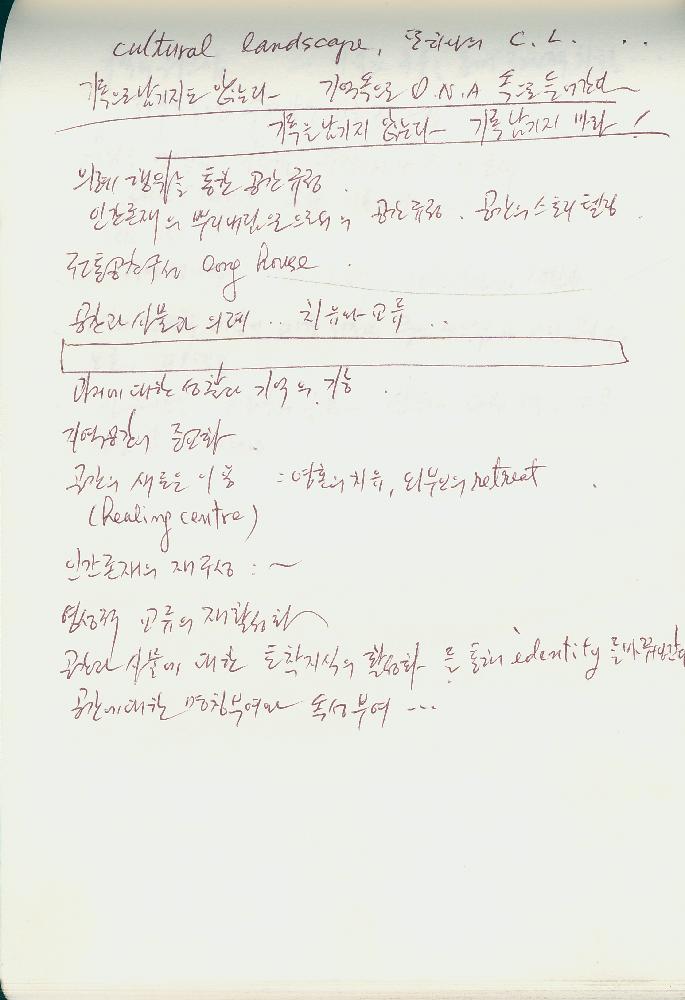 cultural landscape, 또하나의 C. L. ...
기록으로 남기지도 않는다 기억속으로 D.N.A 속으로 들어간다
기록을 남기지 않는다 기록 남기지 마라 !
의례 행위를 통한 공간 규정 .
인간존재의 뿌리내림으로의 공간규정 . 공간의 스토리텔링 .
전통공간구성 long house .
공간과 사물과 의례 .. 치유와 교류 ..
과거에 대한 성찰과 기억의 기능 .
지역공간의
공간의 새로운 이용 : 영혼의 치유, 외부인의 retreat .
(healing centre)
인간존재의 재구성 : ~
영성적 교류의 재활성화
공간과 사물에 대한 토착지식의 활성화 를 통해 identity 를
공간에 대한 명칭부여와 독성부여 ...